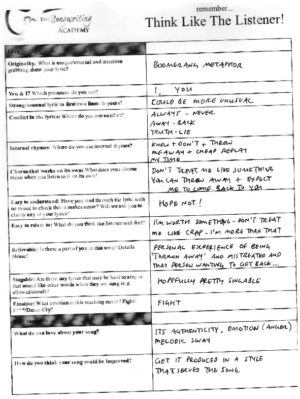 remember...
Think Like The Listener!
the Songwriting
ACADEMY
Originality: What is unique/unusual and attention
grabbing about your lyric?
BOOMERANG METAPHOR
You & I? Which pronouns do you use?
I, YOU
Strong unusual lyric in first two lines: Is yours?
COULD BE MORE UNUSUAL
Conflict in the lyrics: Where do you use conflict?
ALWAYS - NEVER
AWAY - BACK
TRUTH - LIE
Internal rhymes: Where do you use internal rhymes?
KNEW + DON'T + THROW
ME AWAY + CHEAP REPLAY
MY TIME
Chorus that works on its own: What does your chorus
mean when you listen to it on its own?
DON'T TREAT ME LIKE SOMETHING
YOU CAN THROW AWAY + EXPECT
ME TO COME BACK TO YOU
Easy to understand: Have you read through the lyric with
no music to check that it makes sense? Will we ask you to
clarify any of your lyrics?
HOPE NOT!
Easy to relate to: What do you think the listener will feel?
I'M WORTH SOMETHING - DON'T TREAT
ME LIKE CRAP - I'M MORE THAN THAT
Believable: Is there a part of you in this song? Details
please!
PERSONAL EXPERIENCE OF BEING
'THROWN AWAY' AND MISTREATED AND
THAT PERSON WANTING TO GOT BACK...
Singable: Are there any lyrics that may be hard to sing or
that sound like other words when they are sung (e.g.
HOPEFULLY PRETTY SINGABLE
Emotive: What emotion is this reaching out to? Fight/
F***/Dance/Cry?
FIGHT
What do you love about your song?
ITS AUTHENTICITY, EMOTION (ANGER)
MELODIC SWAY
How do you think your song could be improved?
GET IT PRODUCED IN A STYLE
THAT SERVES THE SONG.